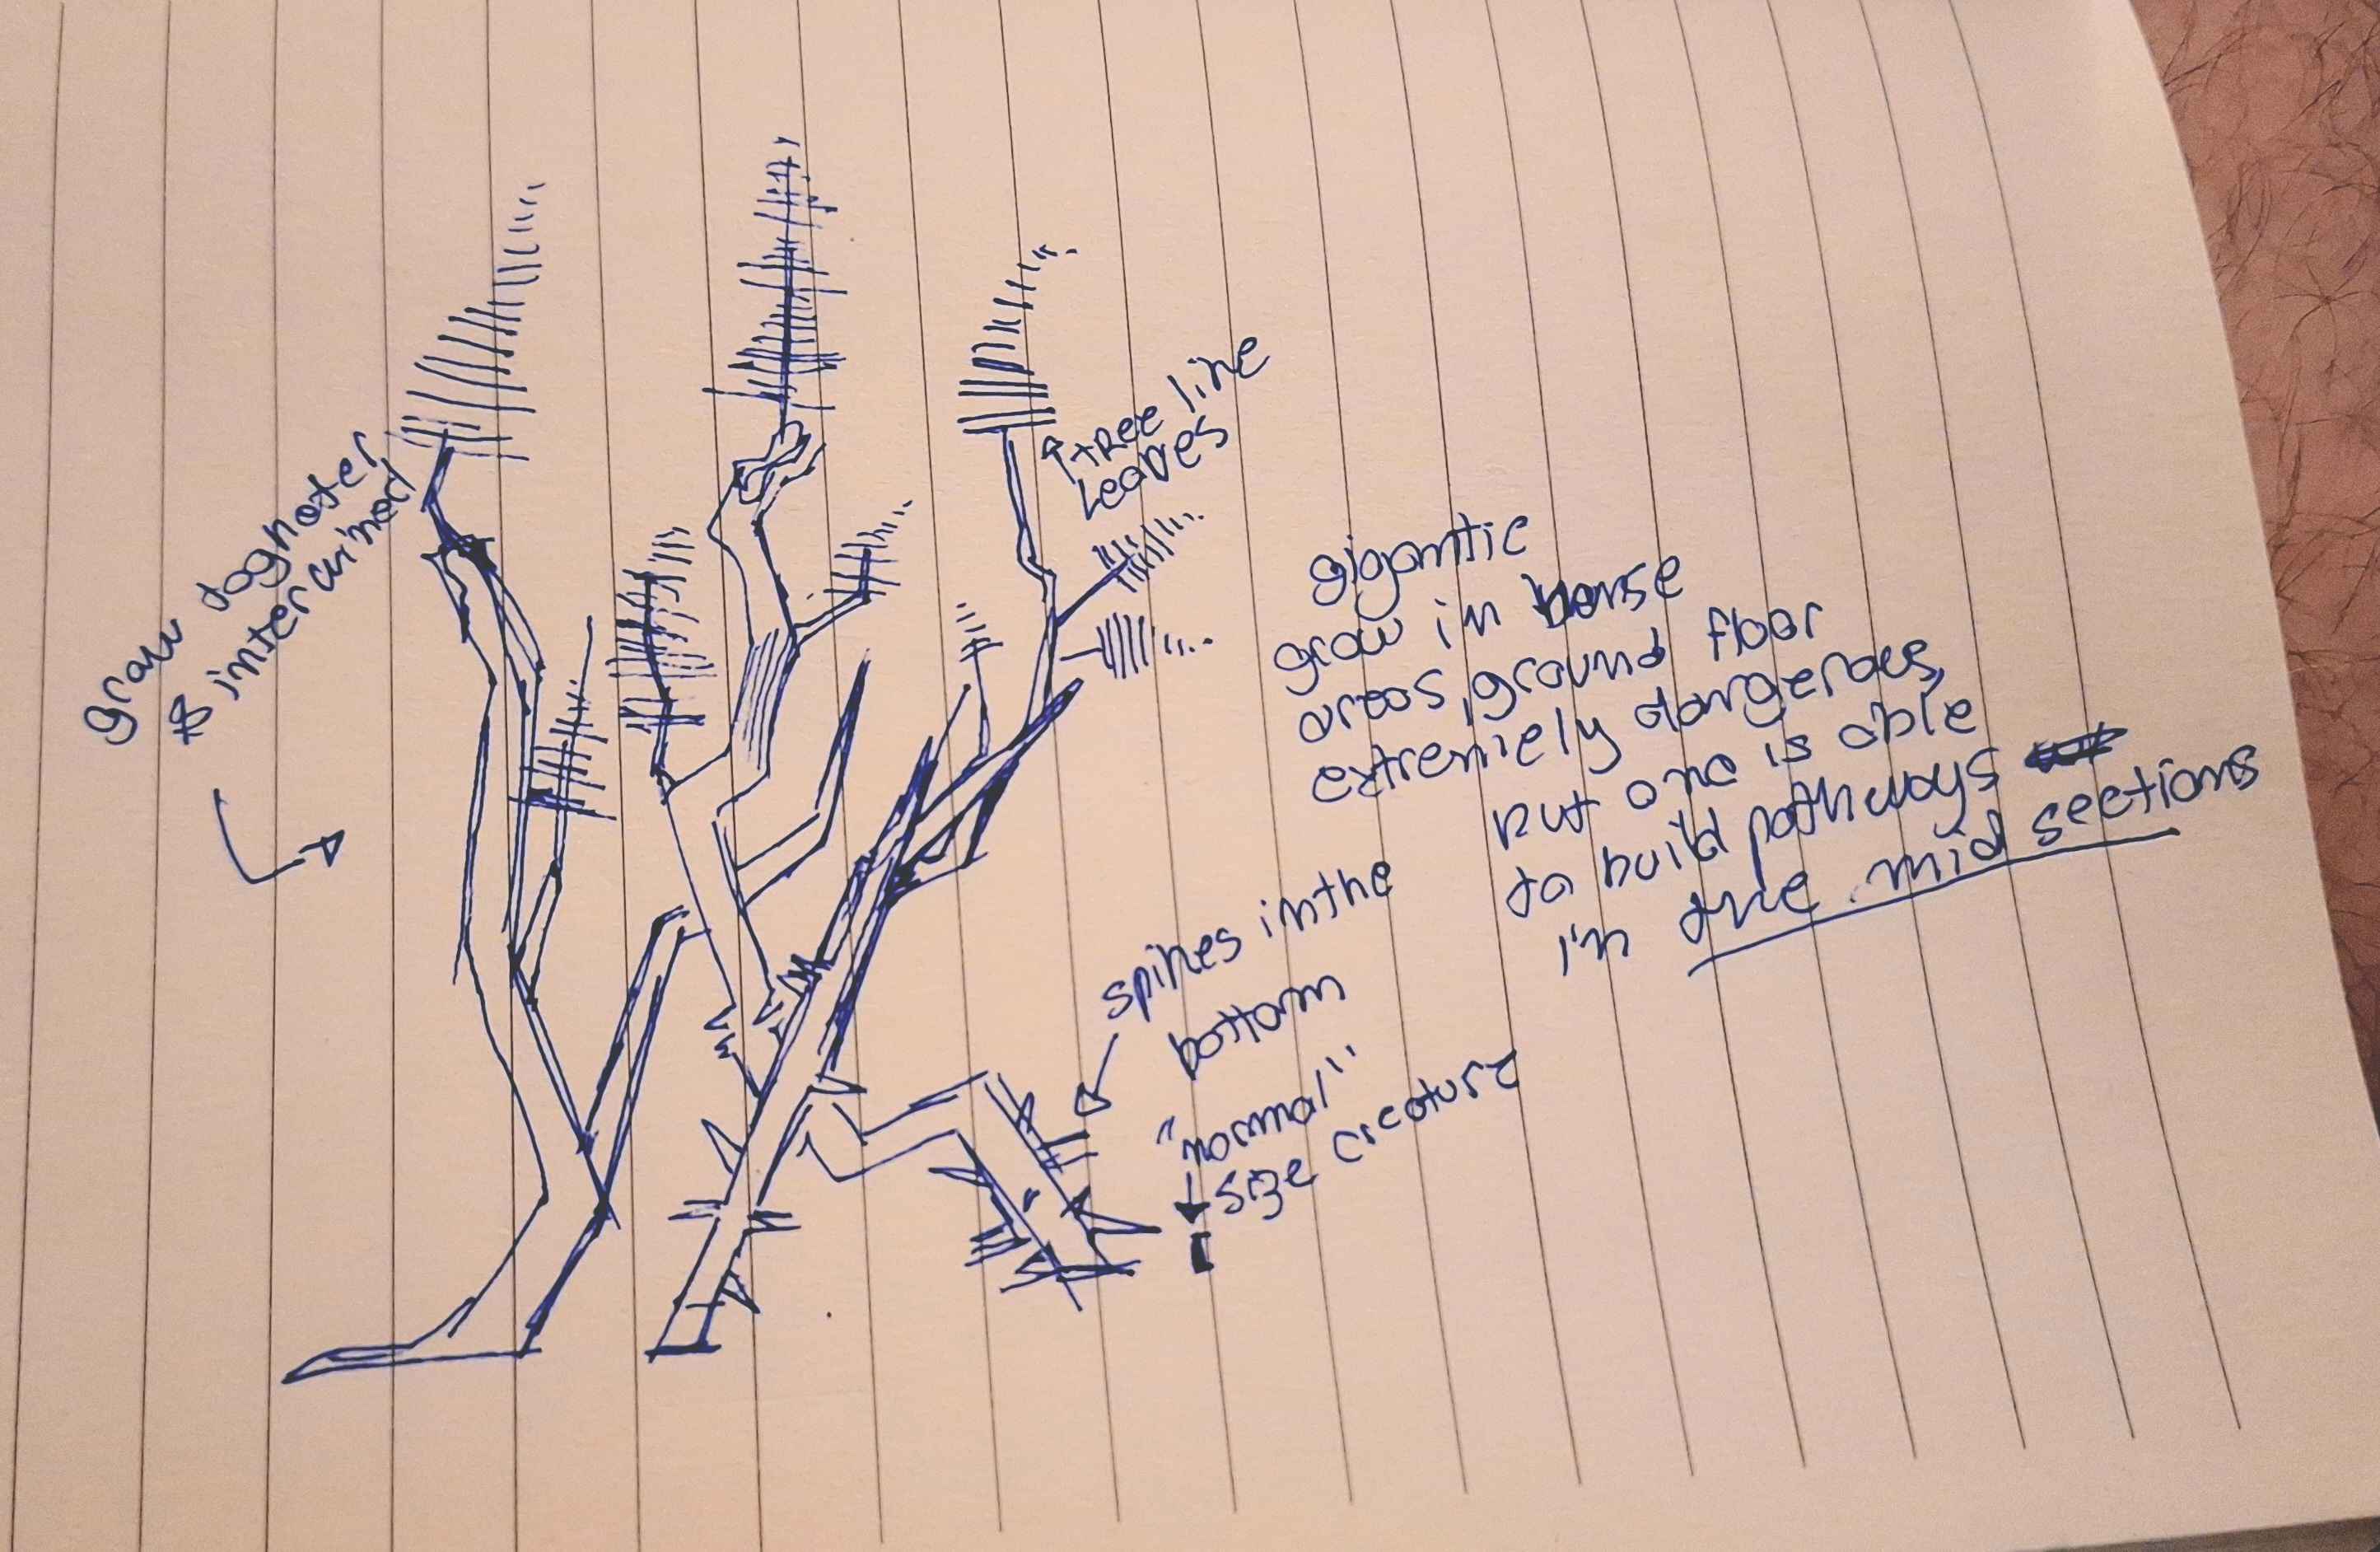 grow together
& intertwined
tree line
leaves
gigantic
grow in dense
areas, ground floor
extremely dangerous,
but one is able
to build pathways
in the mid sections
spikes in the
bottom
"normal"
size creature